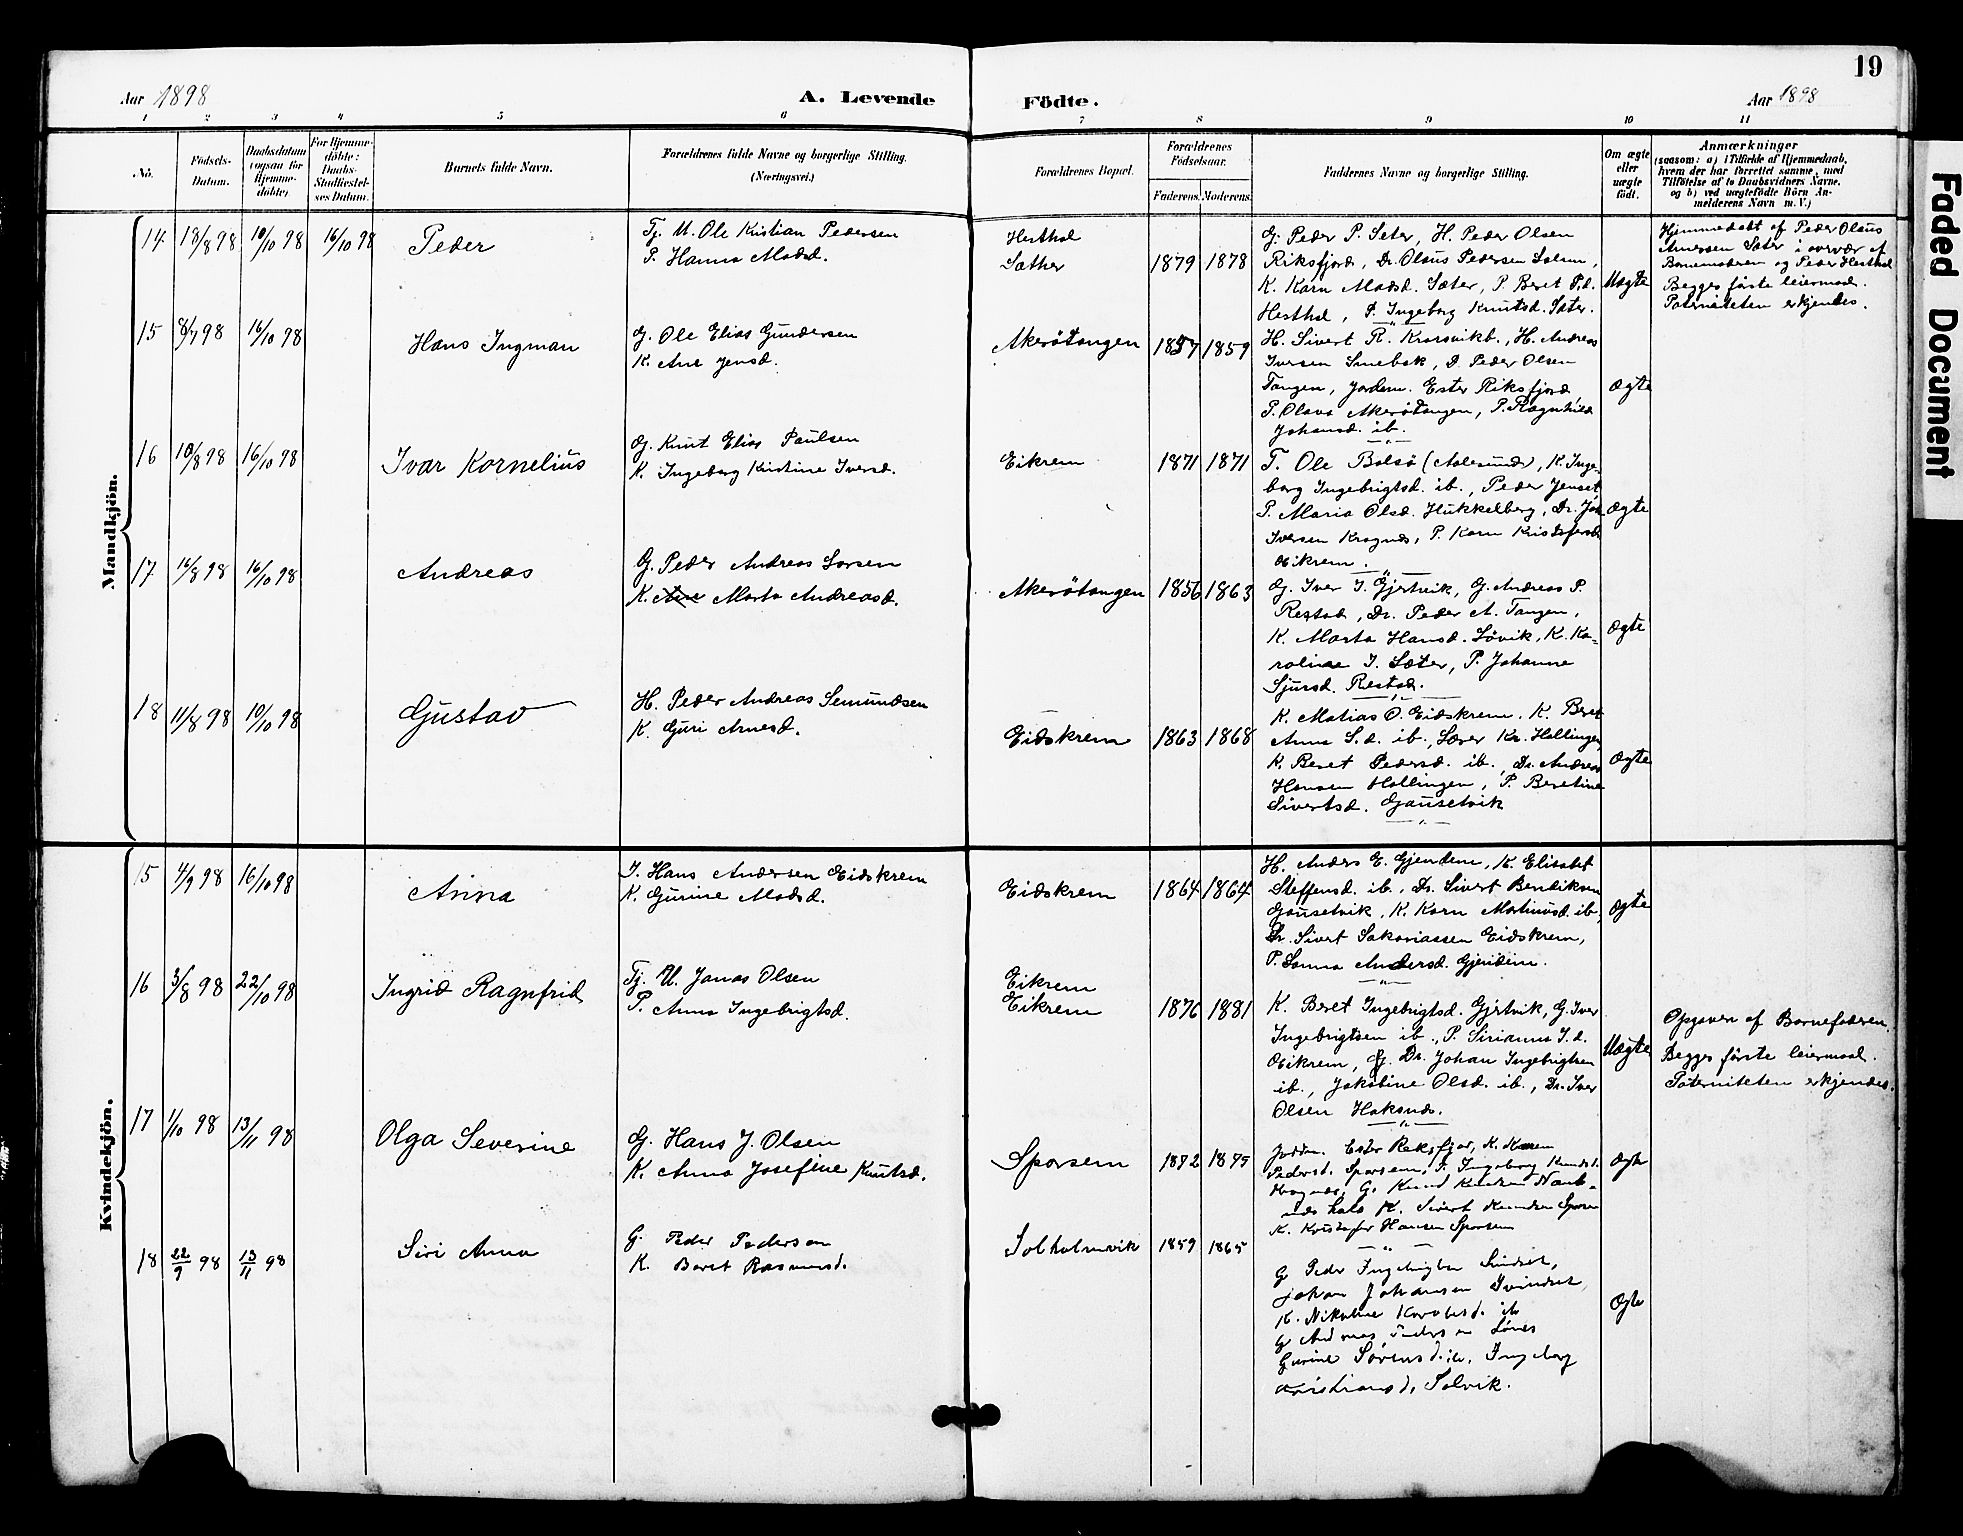 19
Aar 1898
A. Levende Födte.
Aar 1898
1 2 3 4 5 6 7 8 9 10 11
No.
Födsels-
Datum.
Daabsdatum
(ogsaa for
Hjemme-
döbte).
For Hjemme-
döbte:
Daabs-
Stadfæstel-
ses Datum.
Barnets fulde Navn.
Forældrenes fulde Navne og borgerlige Stilling.
(Næringsvei.)
Forældrenes Bopæl.
Forældrenes
Födselsaar.
Faderens. Moderens.
Faddernes Navne og borgerlige Stilling.
Om ægte
eller
uægte
födt.
Anmærkninger
(saasom: a) i Tilfælde af Hjemmedaab,
hvem der har forrettet samme, med
Tilföielse af to Daabsvidners Navne,
og b) ved uægtefödte Börn An-
melderens Navn m. V.)
Mandkjön.
14 18/8 98 10/10 98 16/10 98
Peder
Tj. U. Ole Kristian Pedersen
P. Hanna Madsd.
Hesthol
Sæther
1879 1878
G. Peder P. Seter, H. Peder Olsen
Riksfjord, Dr. Olaus Pedersen
K. Karn Madsd. Sæter, P. Beret P.d.
Hesthol, P. Ingeborg Knutsd. Sæter.
Uægte
Hjemmedöbt af Peder Olaus
Arnesen Sæter i overvær af
Barnemoderen og Peder Hesthol
Begges förste leiermaal.
Paterniteten erkjendes.
15 8/7 98 16/10 98
Hans Ingman
G. Ole Elias Gundersen
K. Ane Jensd.
Akerötangen
1857 1859
H. Sivert R. H. Andreas
Iversen Smebak, D. Peder Olsen
Tangen, Jordem. Ester Riksfjord
P. Olava Akerötangen, P. Ragnhild
Johansd. ib.
Ægte
16 10/8 98 16/10 98
Ivar Kornelius
G. Knut Elias Paulsen
K. Ingeborg Kristine Iversd.
Eikrem
1871 1871
T. Ole Bolsö (Aalesund), K. Inge-
borg Ingebrigtsd. ib., Peder Jenset
P. Maria Olsd. Hukkelberg, Dr.
Iversen Kragnæs, P. Karn
Eikrem.
Ægte
17 16/8 98 16/10 98
Andreas
G. Peder Andreas Larsen
K. Ane Marta Andreasd.
Akerötangen
1856 1863
G. Iver I. Gjertvik, G. Andreas P.
Restad, Dr. Peder A. Tangen,
K. Marta Hansd. Lövik, K. Ka-
roline I. Sæter, P. Johanne
Sjursd. Restad.
Ægte
18 11/8 98 10/10 98
Gustav
H. Peder Andreas Semundsen
K. Guri Arnesd.
Eidskrem
1863 1868
K. Matias O. Eidskrem. K. Beret
Anna S.d. ib., Lærer Kr. Hollingen,
K. Beret Pedersd. ib., Dr. Andreas
Hansen Hollingen, P. Beretine
Sivertsd. Gausetvik
Ægte
Kvindekjön.
15 4/9 98 16/10 98
Anna
I. Hans Andersen Eidskrem
K. Gurine Madsd.
Eidskrem
1864 1864
H. Anders E. Gjendem, K. Elisabet
Steffensd. ib., Dr. Sivert Bendiksen
Gausetvik, K. Karn Martinusd. ib.,
Dr. Sivert Sakariassen Eidskrem,
P. Sanna Andersd. Gjendem.
Ægte
16 3/8 98 22/10 98
Ingrid Ragnfrid
Tj. U. Jonas Olsen
P. Anna Ingebrigtsd.
Eikrem
Eikrem
1876 1881
K. Beret Ingebrigtsd. Gjertvik, G. Iver
Ingebrigtsen ib., P. Sirianna I.d.
Eikrem, G. Dr. Johan Ingebrigtsen
ib., Jakobine Olsd. ib., Dr. Iver
Olsen Haksnæs.
Uægte
Opgaven af Barnefaderen.
Begges förste leiermaal.
Paterniteten erkjendes.
17 1/10 98 13/11 98
Olga Severine
G. Hans J. Olsen
K. Anna Josefine Knutsd.
Sporsem
1872 1875
Jordm. Ester Reksfjor, K. Karen
Pedersd. Sporsem, P. Ingeborg Knudsd.
G. Knud Knudsen
K. Sivert Knudsen Sporsem
K. Kristofer Hansen Sporsem
Ægte
18 22/9 98 13/11 98
Siri Anna
G. Peder Pedersen
K. Beret Rasmusd.
Solholmvik
1859 1865
G Peder Ingebrigtsen
Johan Johansen
K. Nikoline ib
G Andreas Pedersen
Gurine Sörensd. ib. Ingeborg
Kristiansd. Solvik.
Ægte
Faded Document